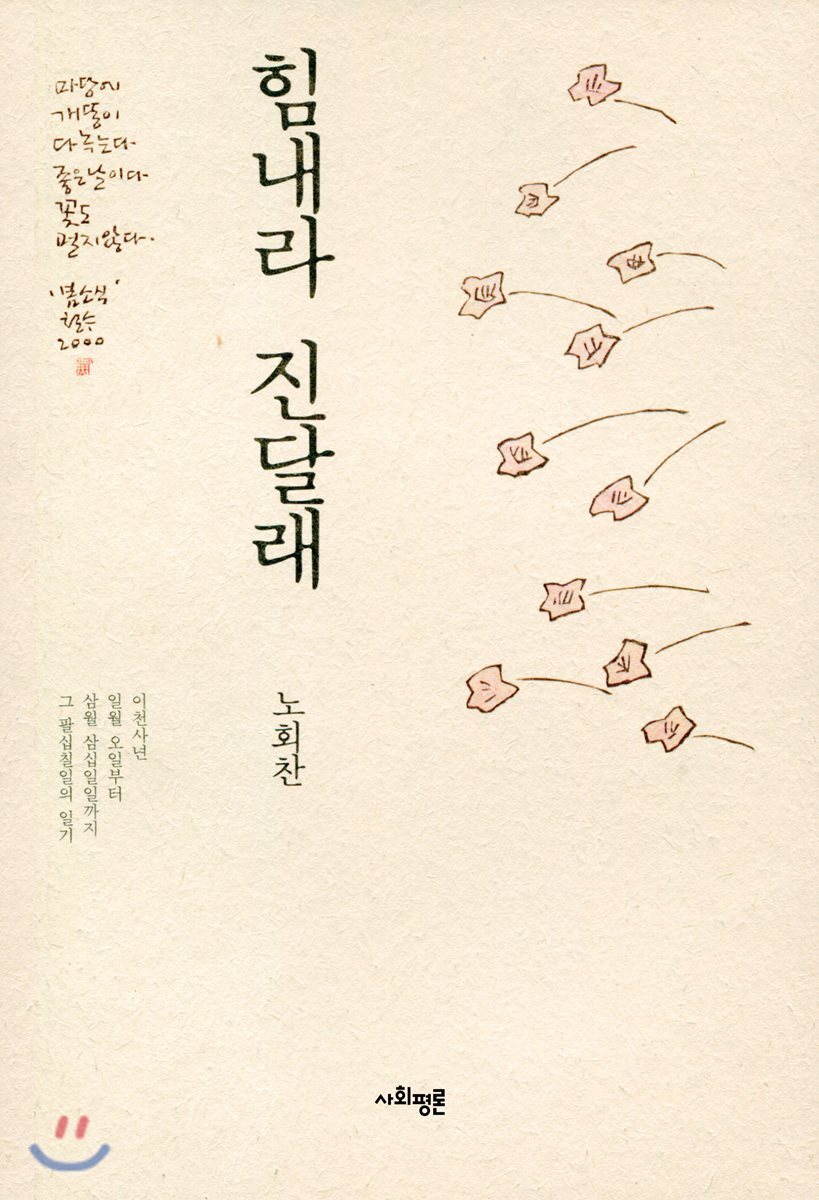 마당에
개똥이
다 녹는다
좋은 날이다
꽃도
멀지 않다.
'봄소식'
철수
2000
힘내라 진달래
노회찬
이천사년
일월 오일부터
삼월 삼십일일까지
그 팔십칠일의 일기
사회평론